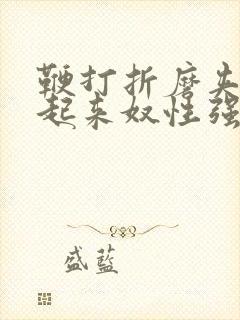 鞭打折磨夹
起来奴性强
盛蓝